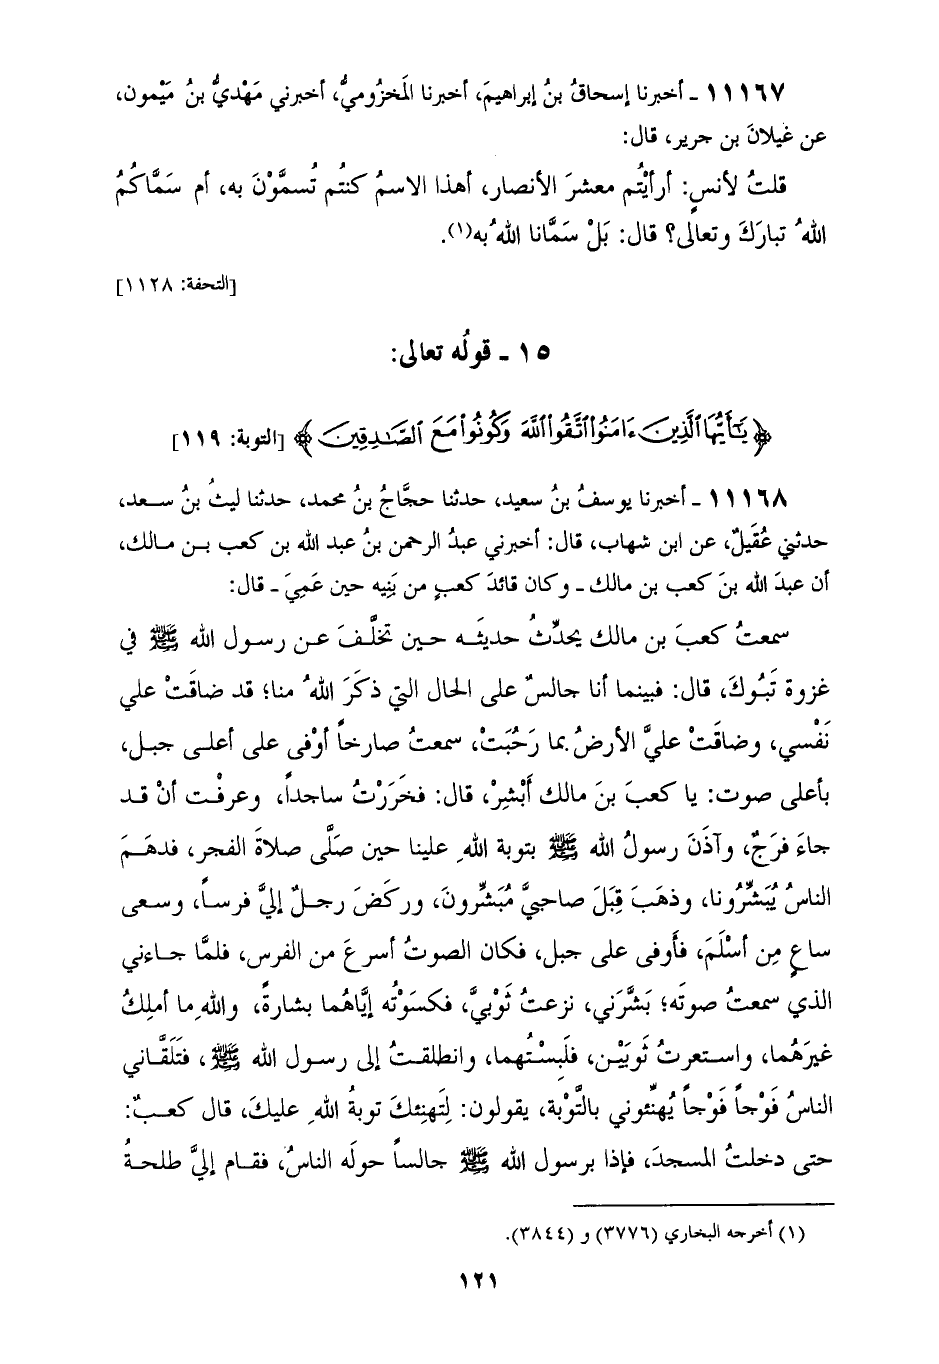 ١١١٦٧ ـ أخبرنا إسحاقُ بنُ إبراهيمَ، أخبرنا المَخزُوميُّ، أخبرني مَهْديُّ بنُ مَيْمون،
عن غيلانَ بن جرير، قال:
قلتُ لأنسٍ: أرأيْتُم معشرَ الأنصار، أهذا الاسمُ كنتُم تُسمَّوْنَ به، أم سَمَّاكُمُ
اللهُ تبارَكَ وتعالى؟ قال: بَلْ سَمَّانا اللهُ به(١).
[التحفة: ١١٢٨]
١٥ ـ قولُه تعالى:
﴿يَٰٓأَيُّهَا ٱلَّذِينَ ءَامَنُوا۟ ٱتَّقُوا۟ ٱللَّهَ وَكُونُوا۟ مَعَ ٱلصَّٰدِقِينَ﴾ [التوبة: ١١٩]
١١١٦٨ ـ أخبرنا يوسفُ بنُ سعيد، حدثنا حجَّاجُ بنُ محمد، حدثنا ليثُ بنُ سعد،
حدثني عُقَيلٌ، عن ابن شهاب، قال: أخبرني عبدُ الرحمن بنُ عبد الله بن كعب بن مالك،
أن عبدَ الله بنَ كعب بن مالك ـ وكان قائدَ كعبٍ من بَنِيه حين عَمِيَ ـ قال:
سمعتُ كعبَ بن مالك يحدِّثُ حديثَه حين تخلَّفَ عن رسول الله ﷺ في
غزوة تَبُوكَ، قال: فبينما أنا جالسٌ على الحال التي ذكَرَ اللهُ منا؛ قد ضاقَتْ علي
نَفْسي، وضاقَتْ عليَّ الأرضُ بما رَحُبَتْ، سمعتُ صارخاً أوْفى على أعلى جبل،
بأعلى صوت: يا كعبَ بنَ مالك أَبْشِرْ، قال: فخَرَرْتُ ساجداً، وعرفْت أنْ قد
جاءَ فرَجٌ، وآذَنَ رسولُ الله ﷺ بتوبة اللهِ علينا حين صَلَّى صلاةَ الفجر، فدهَمَ
الناسُ يُبَشِّرُونا، وذهَبَ قِبَلَ صاحبيَّ مُبَشِّرونَ، وركَضَ رجلٌ إليَّ فرساً، وسعى
ساعٍ مِن أسْلَمَ، فأَوفى على جبل، فكان الصوتُ أسرعَ من الفرس، فلمَّا جاءني
الذي سمعتُ صوتَه؛ بَشَّرَني، نزعتُ ثَوْبيَّ، فكسَوْتُه إيَّاهُما بشارةً، واللهِ ما أملِكُ
غيرَهُما، واستعرتُ ثَوبَيْن، فلَبِسْتُهما، وانطلقتُ إلى رسول الله ﷺ، فتَلَقَّاني
الناسُ فَوْجاً فَوْجاً يُهنِّئوني بالتَّوْبة، يقولون: لِتَهنِئكَ توبةُ اللهِ عليكَ، قال كعبٌ:
حتى دخلتُ المسجدَ، فإذا برسول الله ﷺ جالساً حولَه الناسُ، فقام إليَّ طلحةُ
(١) أخرجه البخاري (٣٧٧٦) و (٣٨٤٤).
١٢١